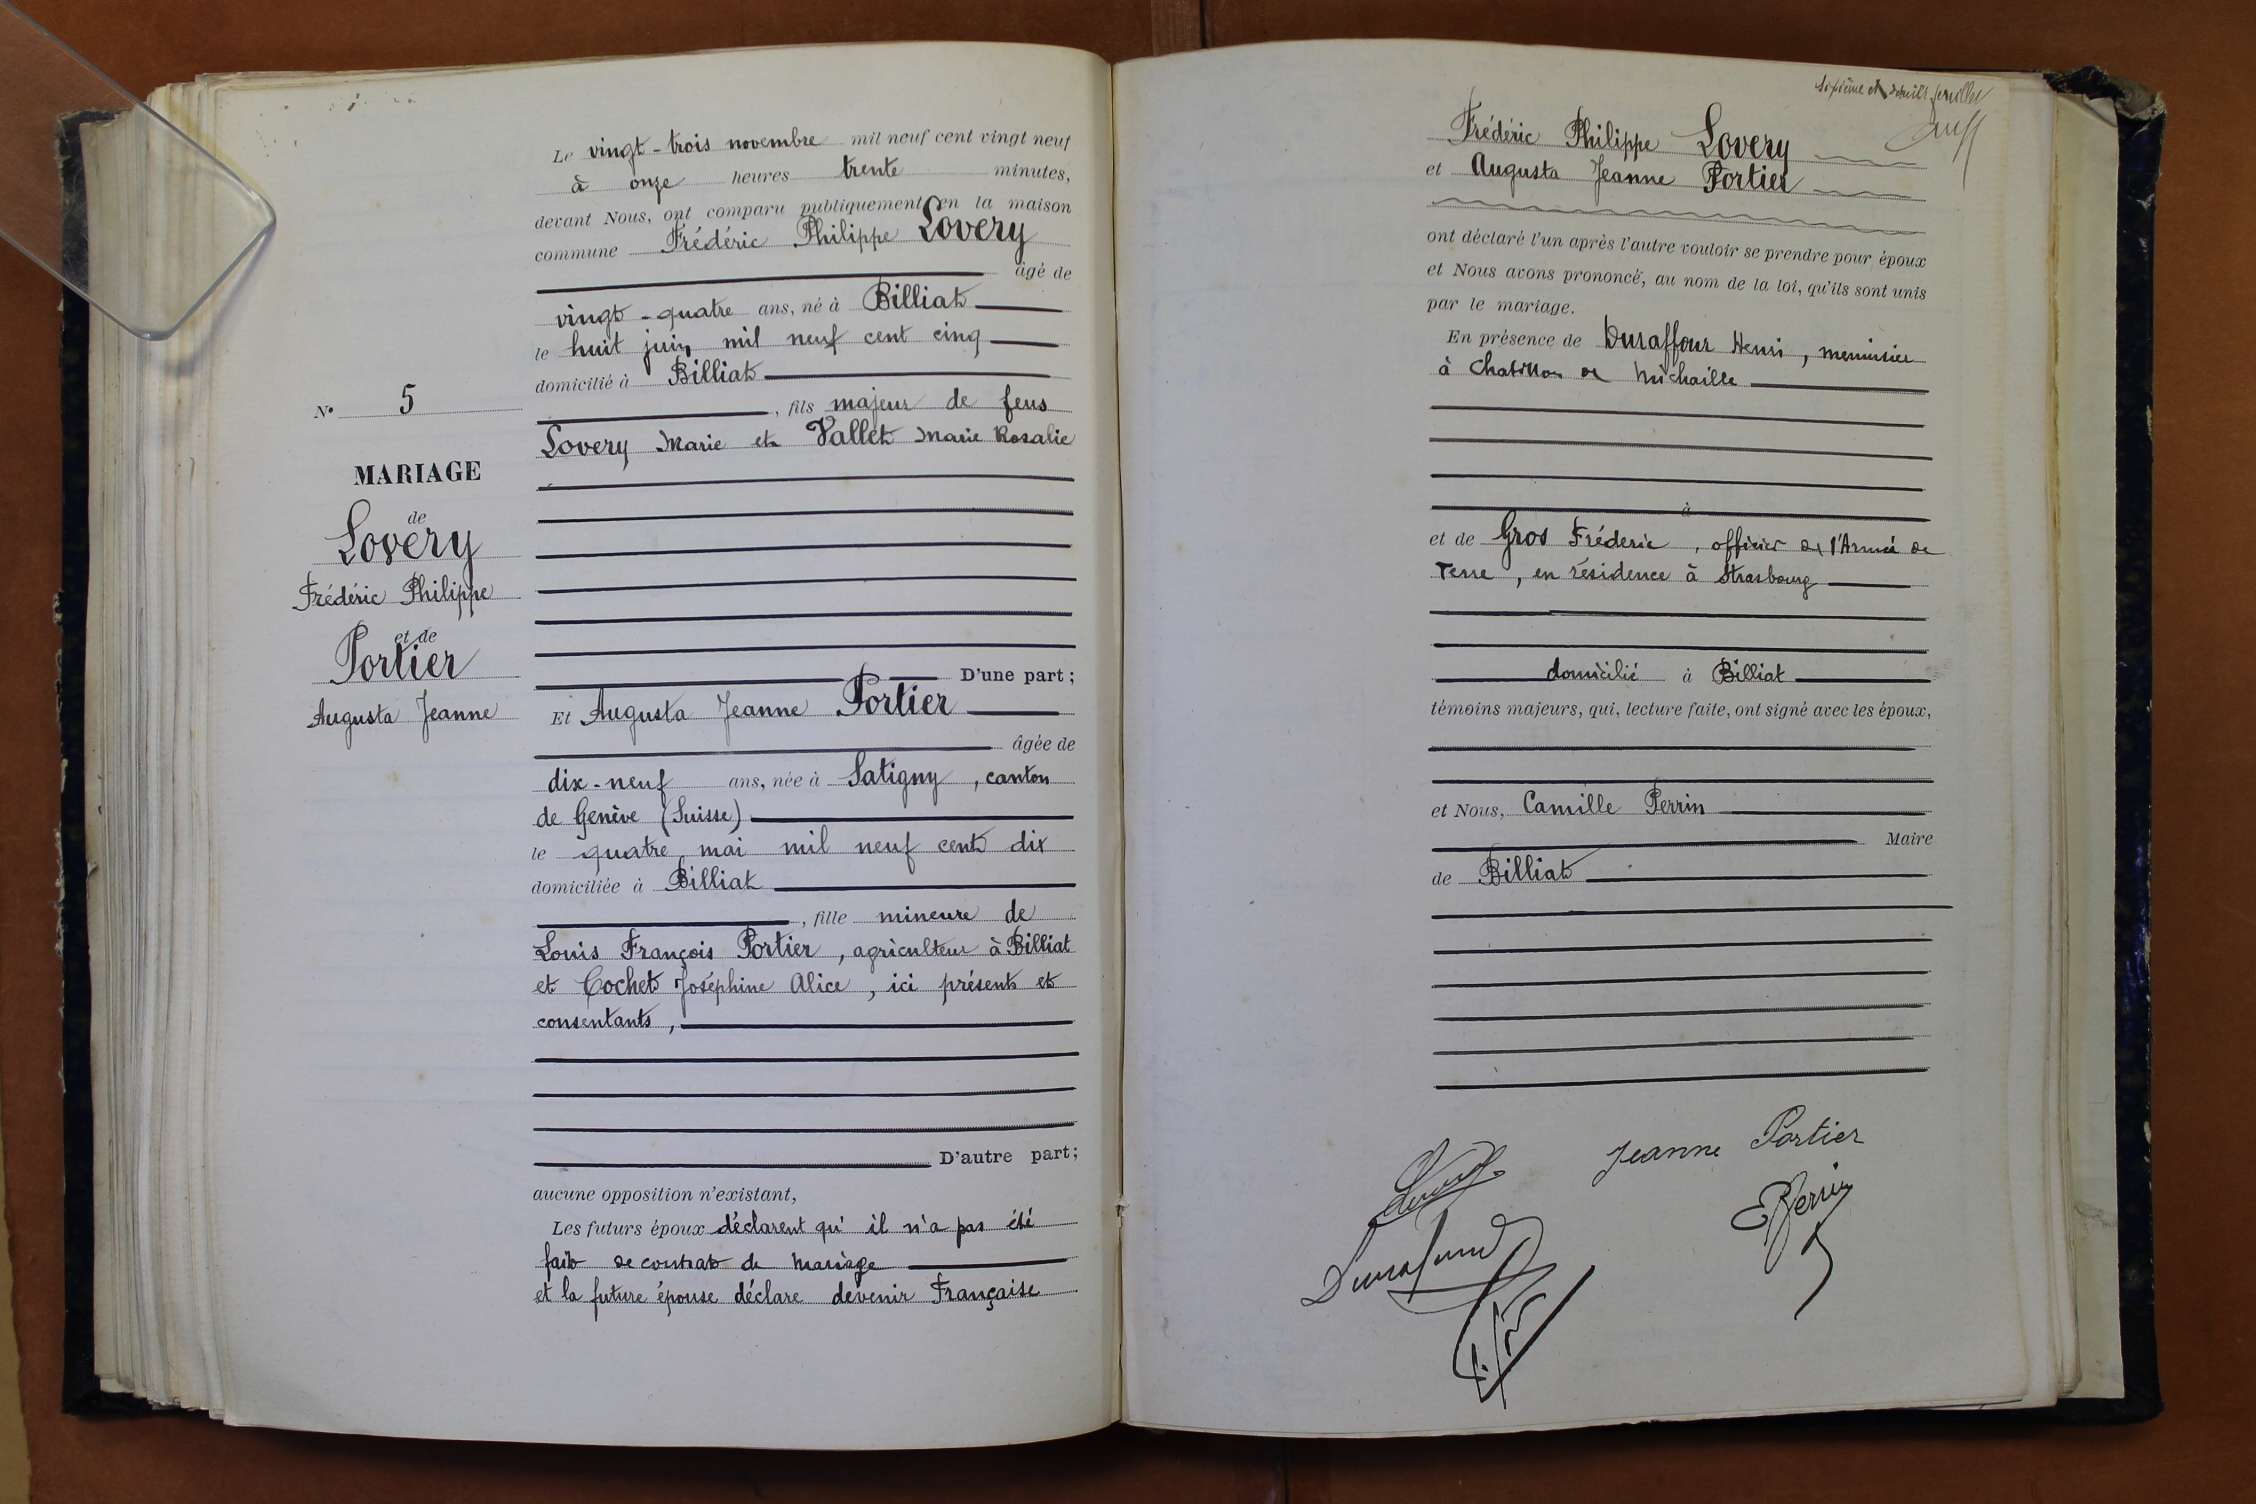 N° 5
MARIAGE
de
Lovery
Frédéric Philippe
et de
Portier
Augusta Jeanne
Le vingt-trois novembre mil neuf cent vingt neuf
à onze heures trente minutes,
devant Nous, ont comparu publiquement en la maison
commune Frédéric Philippe Lovery
âgé de
vingt-quatre ans, né à Billiat
le huit juin mil neuf cent cinq
domicilié à Billiat
, fils majeur de feus
Lovery Marie et Vallet Marie Rosalie
D'une part;
Et Augusta Jeanne Portier
âgée de
dix-neuf ans, née à Satigny, canton
de Genève (Suisse)
le quatre mai mil neuf cent dix
domiciliée à Billiat
, fille mineure de
Louis François Portier, agriculteur à Billiat
et Cochet Joséphine Alice, ici présents et
consentants,
D'autre part;
aucune opposition n'existant,
Les futurs époux déclarent qu'il n'a pas été
fait de contrat de mariage
et la future épouse déclare devenir Française
feuillet
Frédéric Philippe Lovery
et Augusta Jeanne Portier
ont déclaré l'un après l'autre vouloir se prendre pour époux
et Nous avons prononcé, au nom de la loi, qu'ils sont unis
par le mariage.
En présence de Duraffour Henri, menuisier
à Chatillon de Michaille
à
et de Gros Fréderic, officier de l'Armée de
Terre, en résidence à Strasbourg
domicilié à Billiat
témoins majeurs, qui, lecture faite, ont signé avec les époux,
et Nous, Camille Perrin
Maire
de Billiat
Jeanne Portier
Perrin